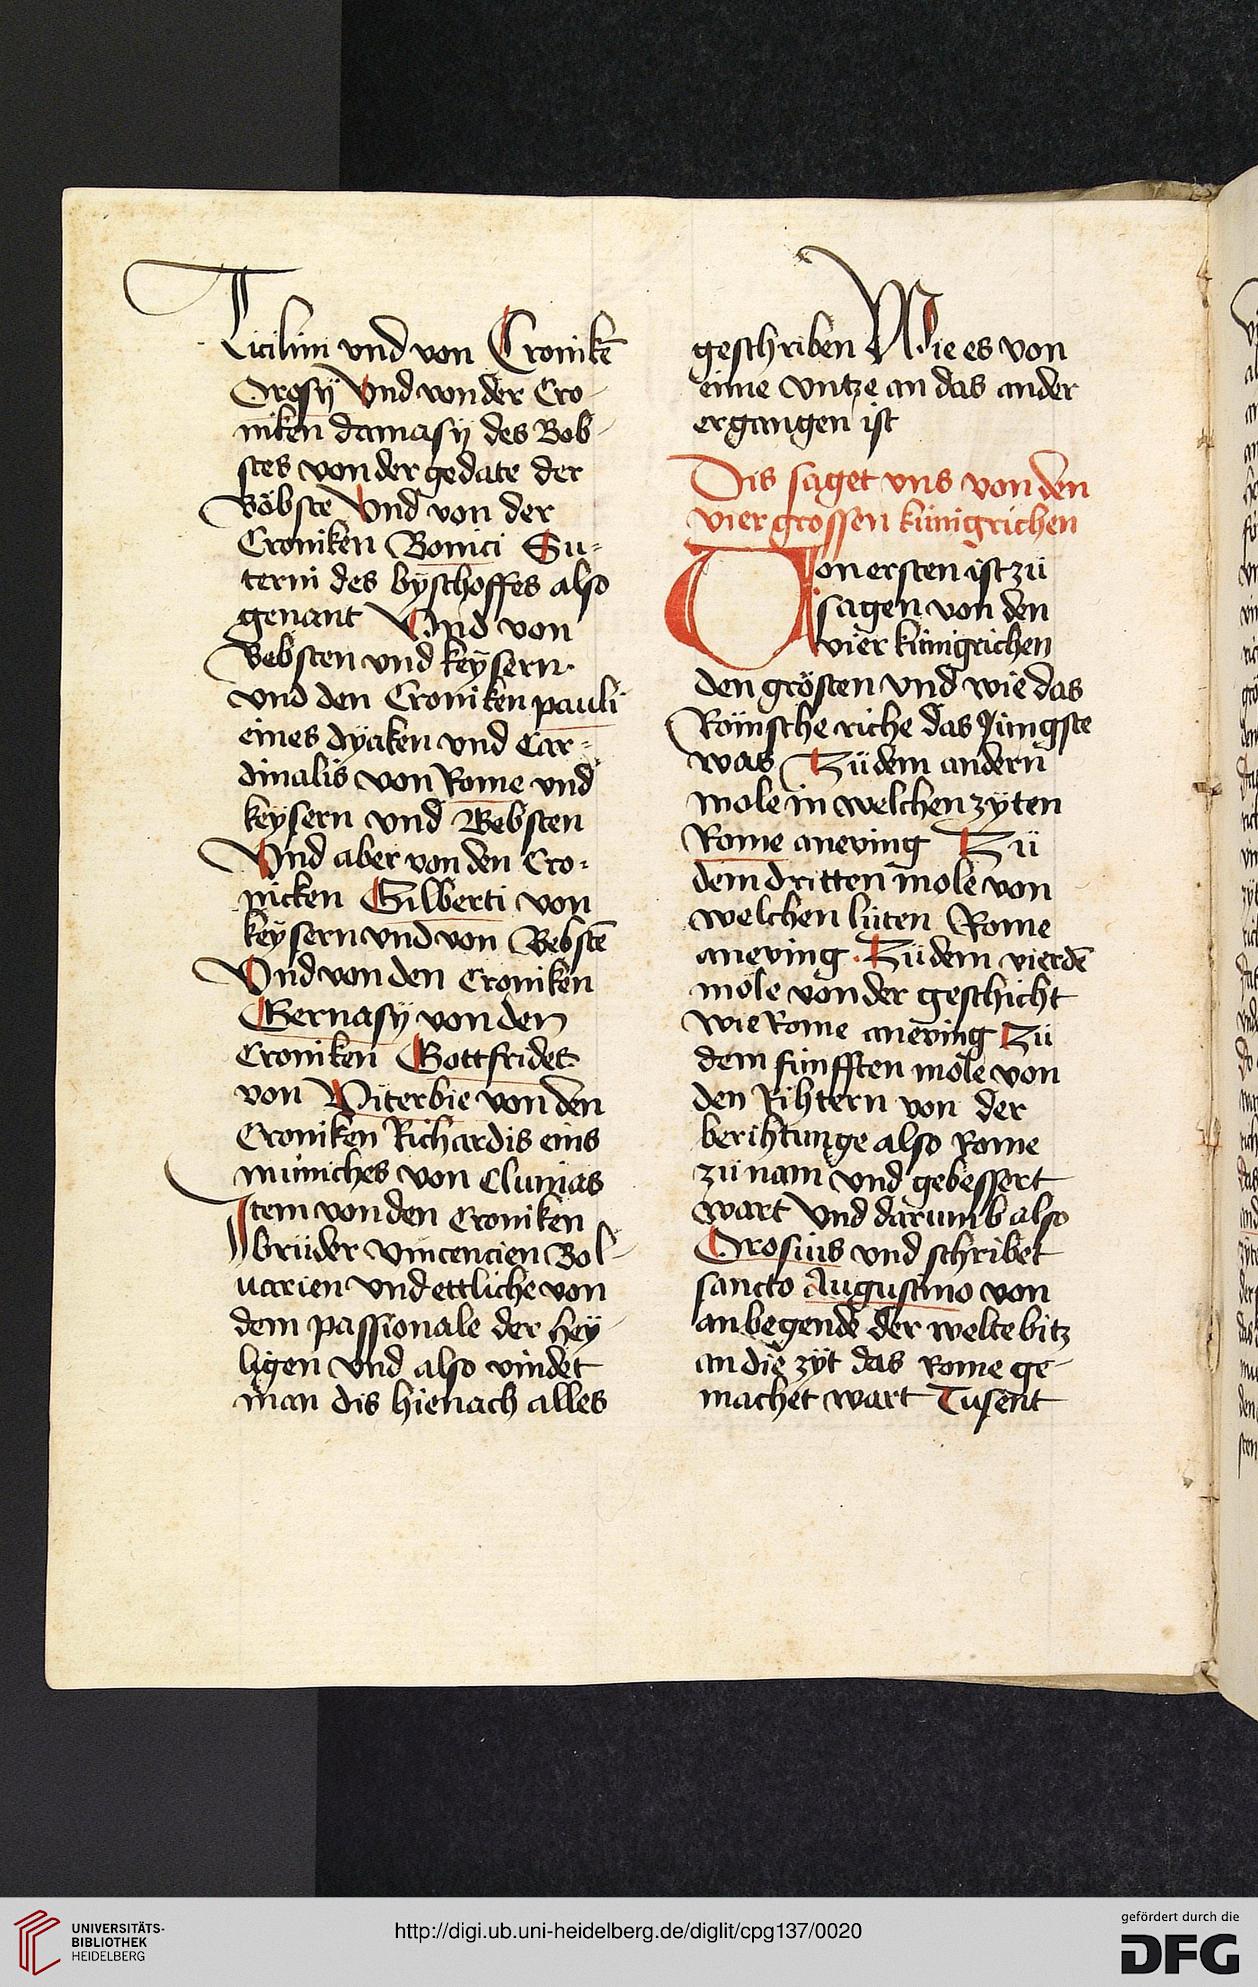 Ticilim vnd von Cronikē
Orosÿ Vnd von der Cro-
niken damasÿ des Bob-
stes von der gedate der
Böbste Vnd von der
Croniken Bonici Su-
terni des bÿschoffes also
genant Vnd von
Bebsten vnd keÿsern.
vnd den Croniken pauli
eines dÿaken vnd Car-
dinalis von Rome vnd
keÿsern vnd Bebsten
Vnd aber von den Cro-
nicken Gilberti von
keÿsern vnd von Bebstē
Vnd von den Croniken
Gernasÿ von den
Croniken Gottfrides
von Viterbie von den
Croniken Richardis eins
müniches von Clunias
Item von den Croniken
brüder vincencien Bol-
uarien vnd ettliche von
dem passionale der heÿ-
ligen vnd also vindet
man dis hienach alles
geschriben Wie es von
eime vntze an das ander
ergangen ist
Dis saget vns von den
vier grossen künigrichen
Von ersten ist zü
sagen von den
vier künigrichen
den grösten vnd wie das
Römsche riche das Jüngste
was Zü dem andern
mole in welchen zÿten
Rome aneving Zü
dem dritten mole von
welchen lüten Rome
aneving. Zü dem vierdē
mole von der geschicht
wie Rome aneving Zü
dem fünfften mole von
den Rihtern von der
berihtunge also Rome
zü nam vnd gebessert
wart Vnd darumb also
Orosius vnd schribet
sancto Augustino von
anbegende der welte bitz
an die zÿt das Rome ge-
machet wart Tusent
UNIVERSITÄTS-
BIBLIOTHEK
HEIDELBERG
http://digi.ub.uni-heidelberg.de/diglit/cpg137/0020
gefördert durch die
DFG